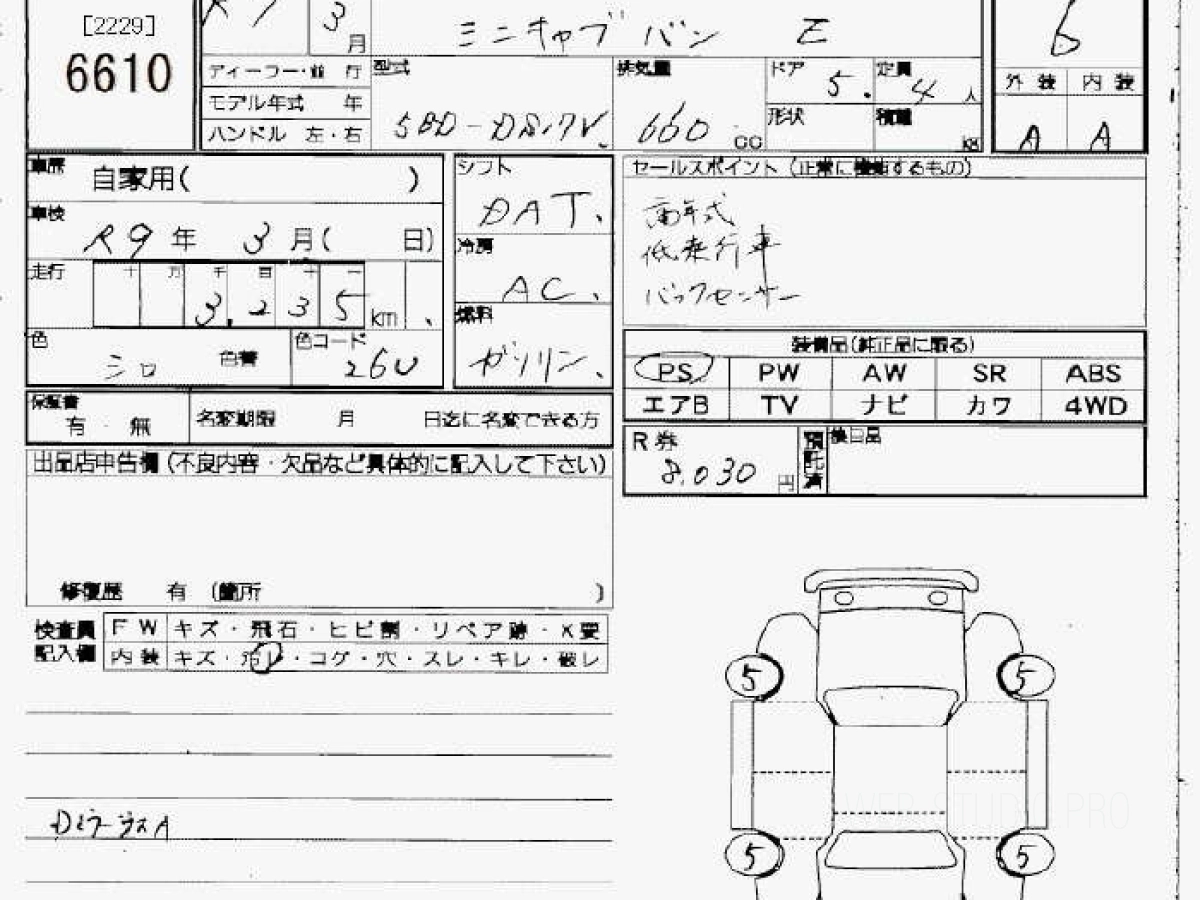 [2229]
6610
3月
ミニキャブ バン E
6
ディーラー・並 行
モデル年式 年
ハンドル 左・右
型式
5BD-DS17V
排気量
660 CC
ドア 5.
定員 4 人
形状
積載 kg
外 装 内 装
A A
車歴 自家用( )
車検 R9 年 3 月( 日)
走行 十 万 千 百 十 一
3,235 km
色 シロ 色替
色コード 26U
シフト
DAT.
冷房
AC.
燃料
ガソリン.
セールスポイント (正常に機能するもの)
高年式
低走行車
バックセンサー
装備品(純正品に限る)
PS PW AW SR ABS
エアB TV ナビ カワ 4WD
保証書
有・無
名変期限 月 日迄に名変できる方
R券 8,030 円
預託済
後日品
出品店申告欄 (不良内容・欠品など具体的に記入して下さい)
修復歴 有 (箇所 )
検査員
記入欄
F W キズ・飛石・ヒビ割・リペア跡・X要
内 装 キズ・汚レ・コゲ・穴・スレ・キレ・破レ
5 5
WEB STUDIO PRO
5 5